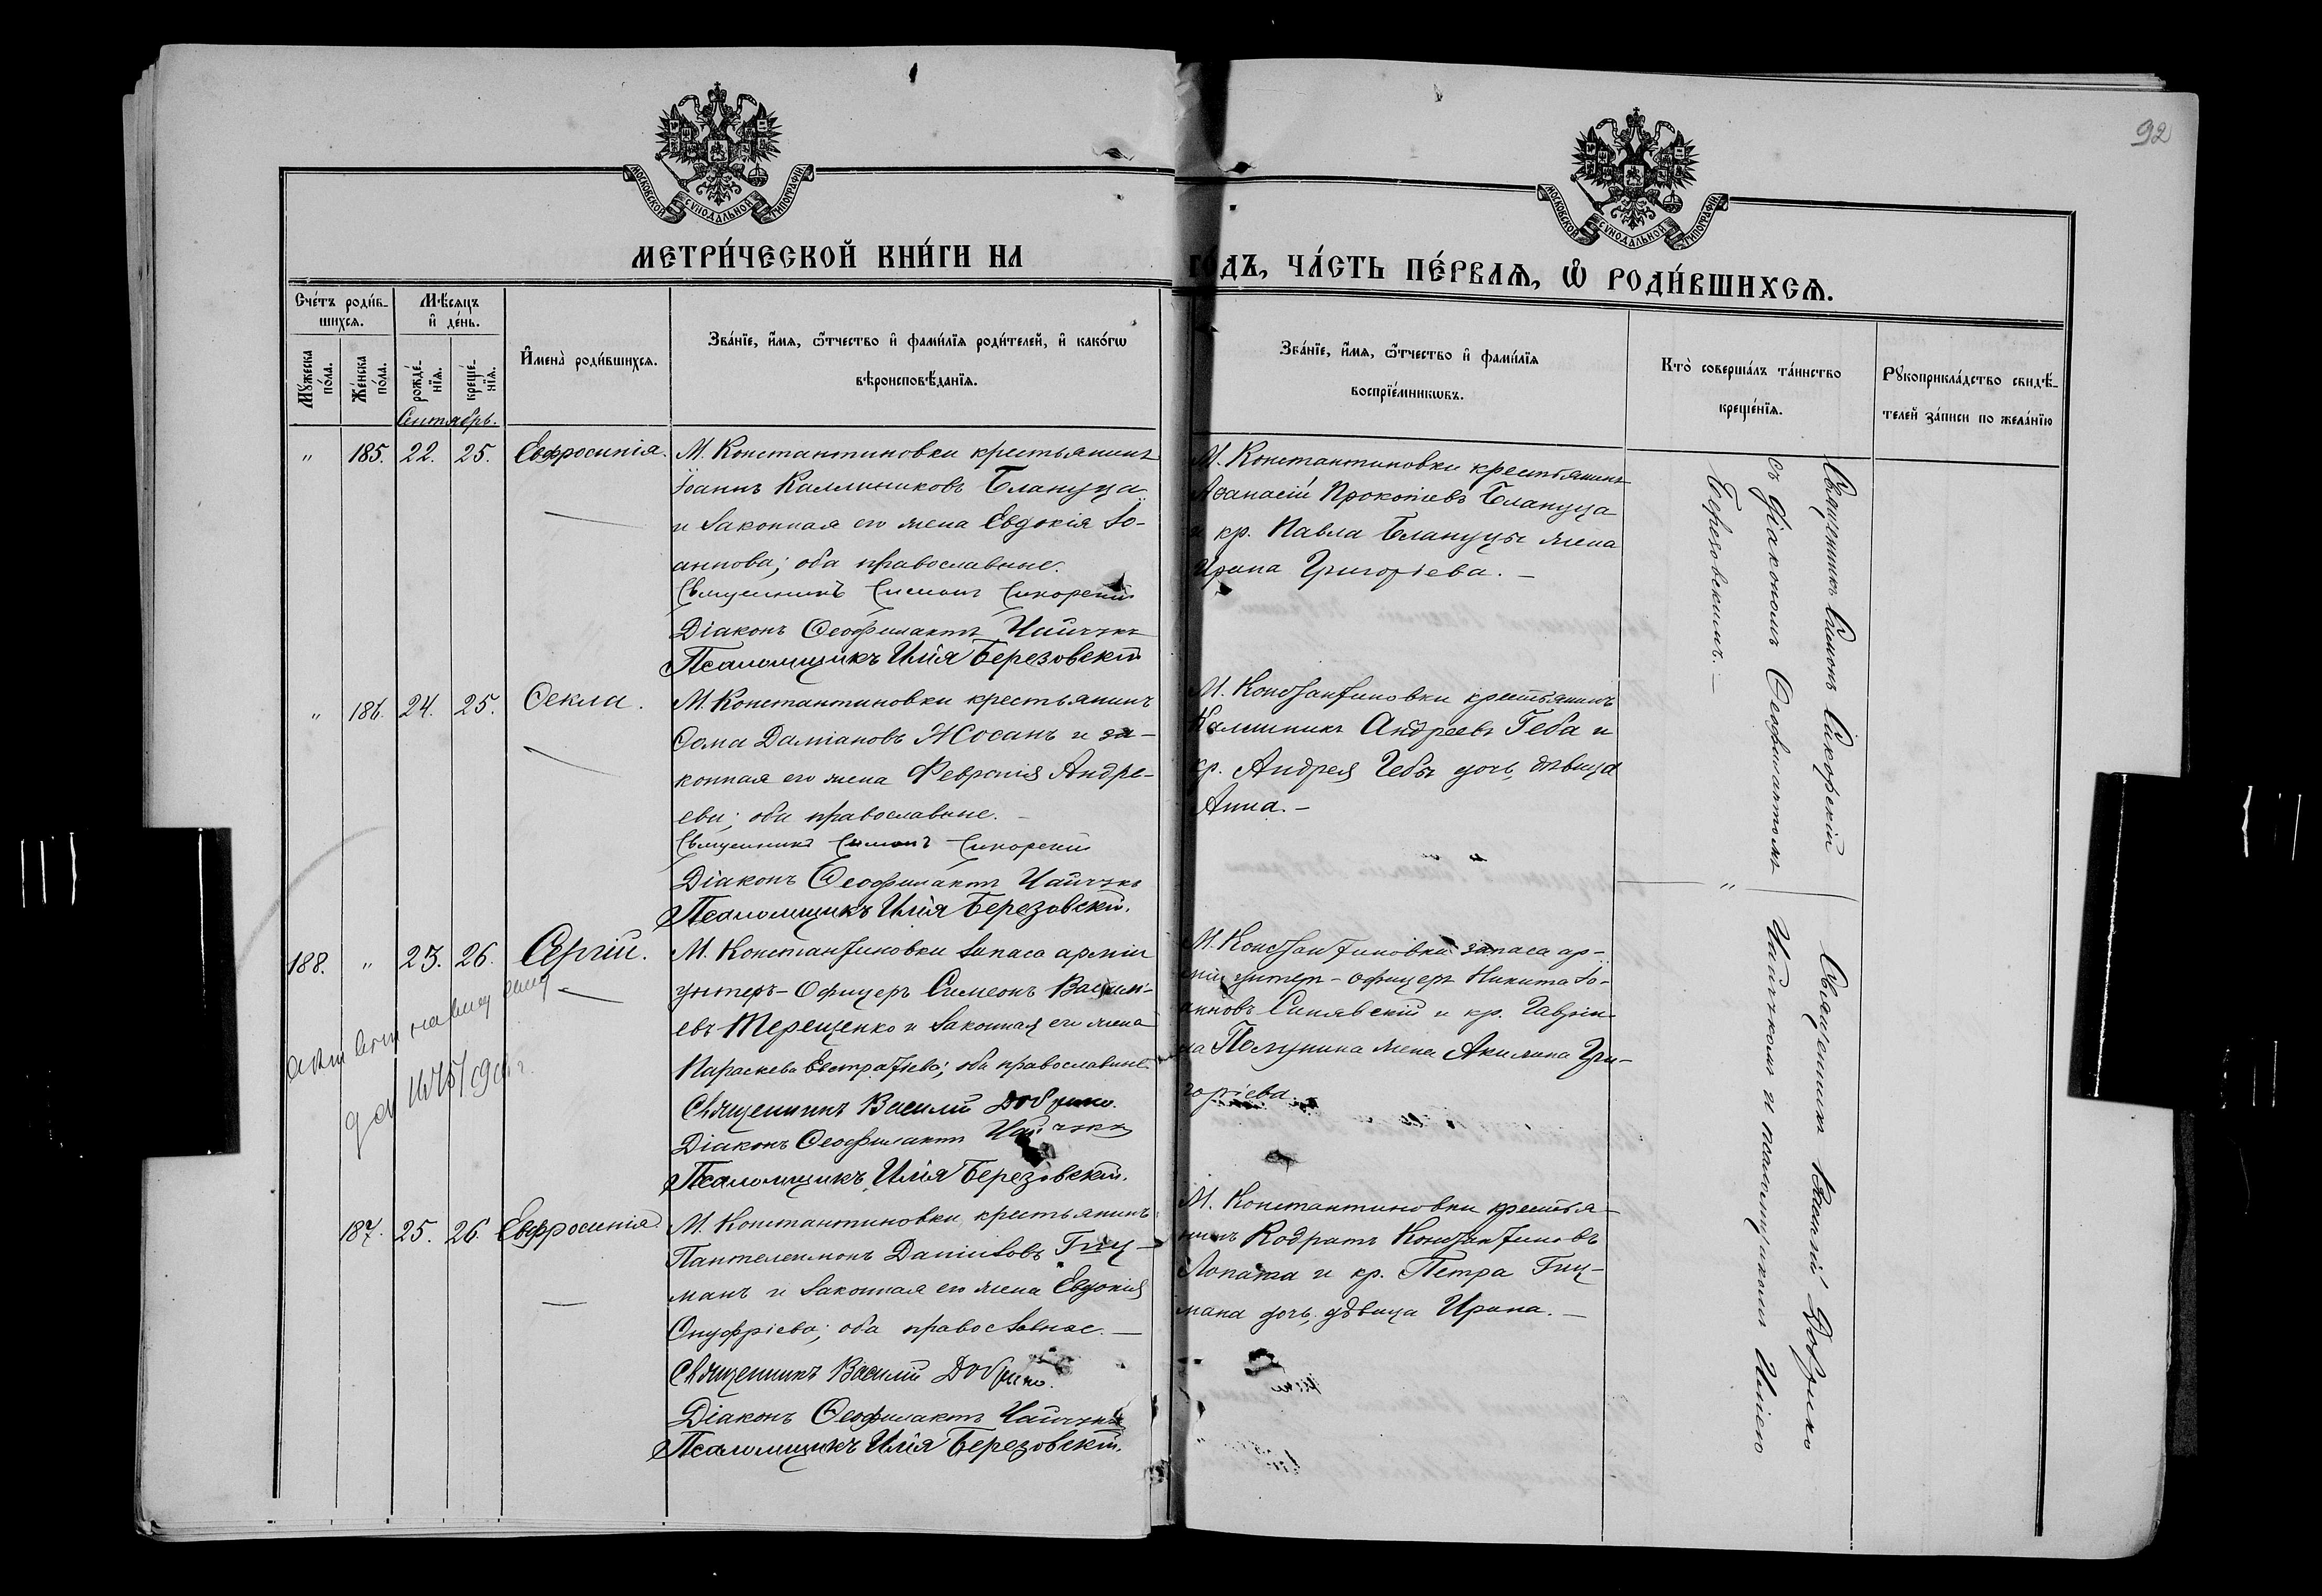 92
МОСКОВСКОЙ СѴНОДАЛЬНОЙ ТИПОГРАФІИ
МОСКОВСКОЙ СѴНОДАЛЬНОЙ ТИПОГРАФІИ
МЕТРИ́ЧЕСКОЙ КНИ́ГИ НА
ГО́ДЪ, ЧА́СТЬ ПЕ́РВАѦ, Ѽ РОДИ́ВШИХСѦ.
Сче́тъ роди́в-
шихсѧ.
Мꙋжеска по́ла.
Же́нска по́ла.
Мѣ́сѧцъ
и҆ де́нь.
рожде́-
нїѧ.
креще́-
нїѧ.
И҆мена̀ роди́вшихсѧ.
Зва́нїе, и҆́мѧ, ѻ҆́тчество и҆ фами́лїѧ роди́телей, и҆ како́гѡ
вѣроисповѣ́данїѧ.
Зва́нїе, и҆́мѧ, ѻ҆́тчество и҆ фами́лїѧ
воспрїе́мникѡвъ.
Кто̀ соверша́лъ та́инство
креще́нїѧ.
Рꙋкоприкла́дство свидѣ́-
телей за́писи по жела́нїю
Сентябрь.
" 185. 22. 25. Евфросинія.
М. Константиновки крестьянинъ
Іоаннъ Каллиниковъ Блануца
и законная его жена Евдокія Іо-
аннова; оба православные.
Священникъ Симонъ Сикорскій
Діаконъ Ѳеофилактъ Чайчукъ
Псаломщикъ Илія Березовскій
М. Константиновки крестьянинъ
Аѳанасій Прокопіевъ Блануца
и кр. Павла Блануцы жена
Ирина Григоріева. —
" 186. 24. 25. Ѳекла.
М. Константиновки крестьянинъ
Ѳома Даміановъ Жосанъ и за-
конная его жена Февронія Андре-
ева; оба православные.
Священникъ Симонъ Сикорскій
Діаконъ Ѳеофилактъ Чайчукъ
Псаломщикъ Илія Березовскій.
М. Константиновки крестьянинъ
Калинникъ Андреевъ Геба и
кр. Андрея Гебы дочь, дѣвица
Анна. —
188. " 23. 26. Сергій.
М. Константиновки запаса арміи
унтеръ-Офицеръ Симеонъ Василі-
евъ Терещенко и законная его жена
Параскева Евстратіева; оба православные
Священникъ Василій
Діаконъ Ѳеофилактъ Чайчукъ
Псаломщикъ Илія Березовскій.
М. Константиновки запаса ар-
міи унтеръ-офицеръ Никита Іо-
анновъ Синявскій и кр. Гавріи-
ла Полунина жена Акилина Гри-
горіева.
187. 25. 26. Евфросинія.
М. Константиновки крестьянинъ
Пантелеимонъ Даніиловъ Гиц-
манъ и законная его жена Евдокія
Онуфріева; оба православные. —
Священникъ Василій
Діаконъ Ѳеофилактъ Чайчукъ
Псаломщикъ Илія Березовскій.
М. Константиновки крестья-
нинъ Кодратъ Константиновъ
Лопата и кр. Петра Гиц-
мана дочь, дѣвица Ирина. —
Священникъ Симонъ Сикорскій
съ діакономъ Ѳеофилактомъ
Священникъ Василій
Чайчукомъ и псаломщикомъ Иліею
Березовскимъ. —